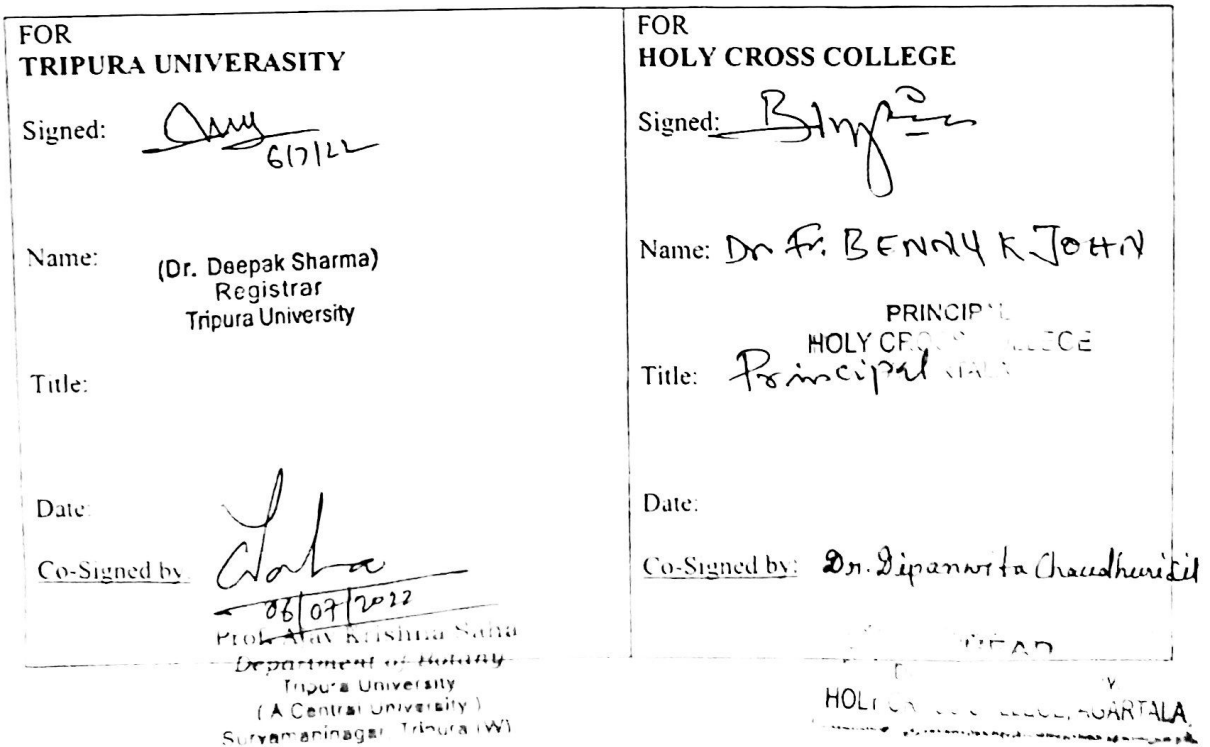 FOR
TRIPURA UNIVERASITY
Signed:
6/7/22
Name:
(Dr. Deepak Sharma)
Registrar
Tripura University
Title:
Date:
Co-Signed by:
06/07/2022
Prof. Ajay Krishna Saha
Department of Botany
Tripura University
( A Central University )
Suryamaninagar, Tripura (W)
FOR
HOLY CROSS COLLEGE
Signed:
Name: Dr. Fr. BENNY K JOHN
PRINCIPAL
HOLY CROSS COLLEGE
Title: Principal
Date:
Co-Signed by: Dr. Dipanwita Chaudhuri
HEAD
AGARTALA